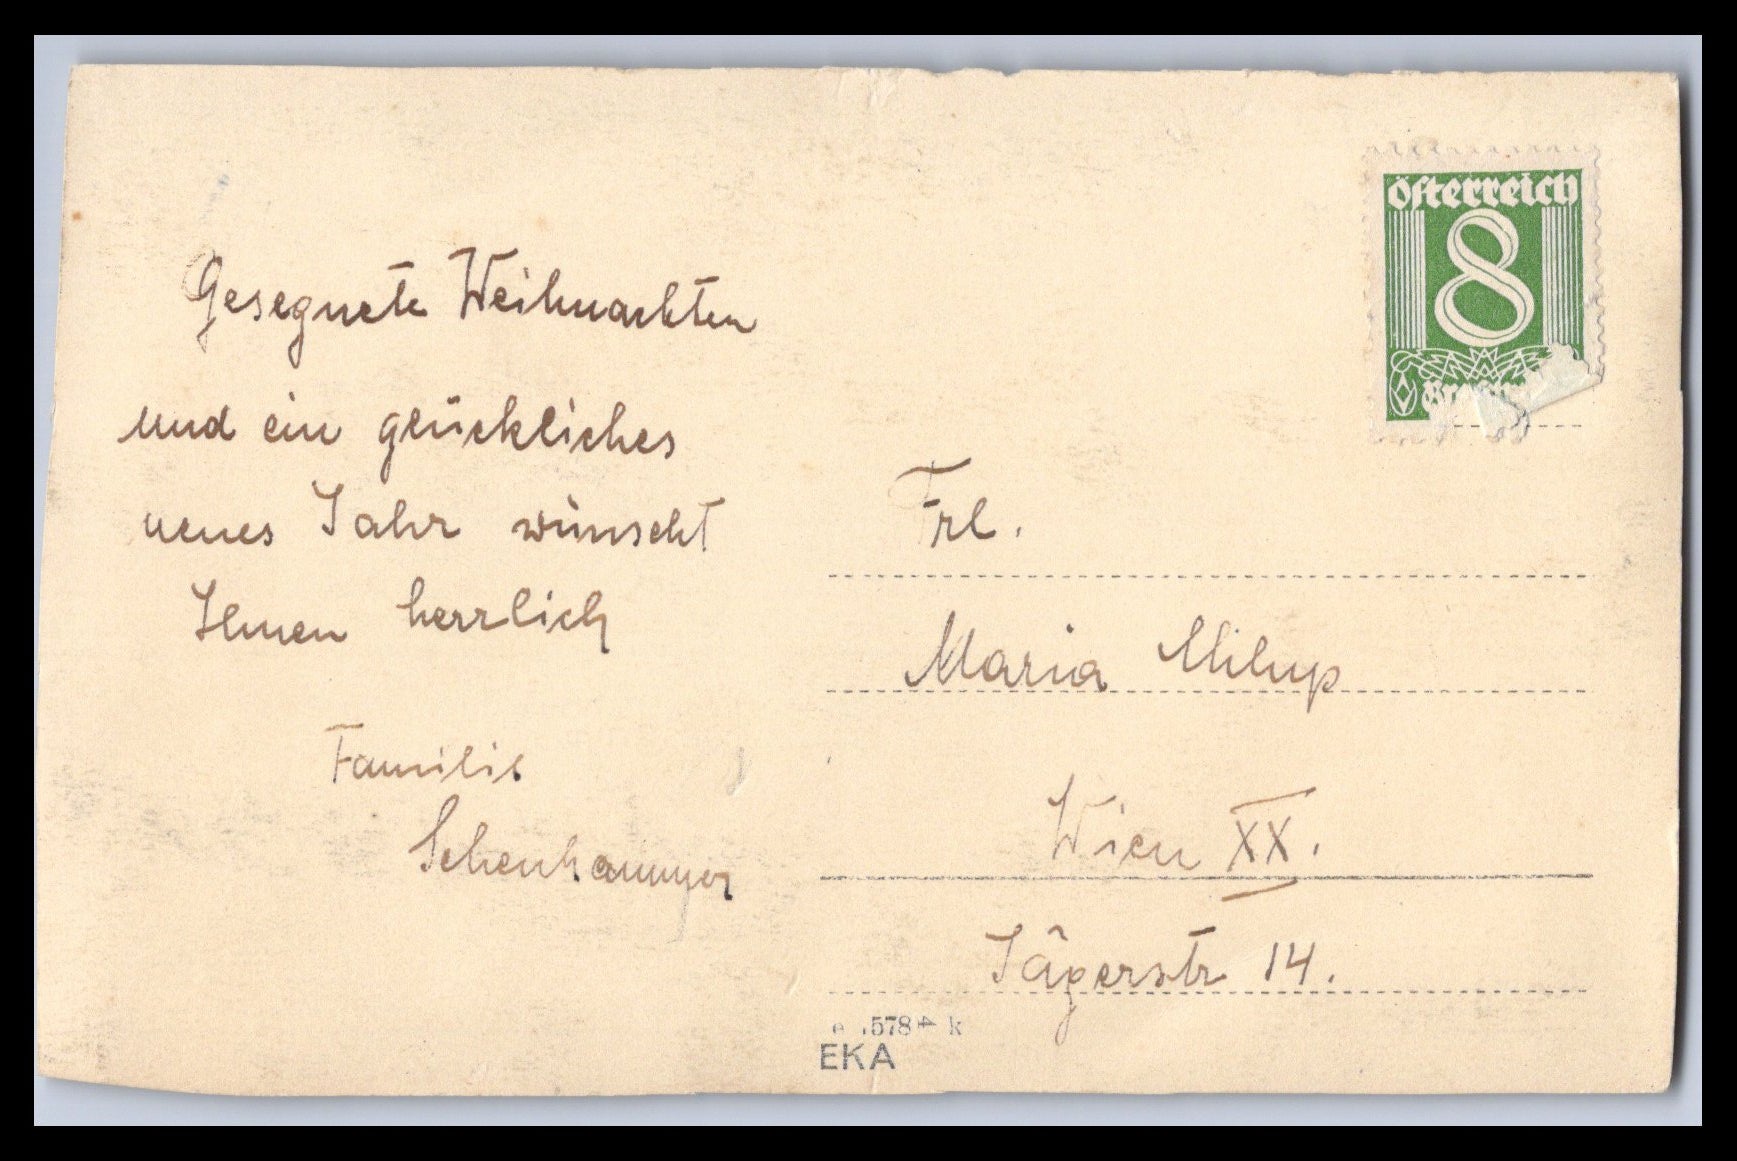 Gesegnete Weihnachten
und ein glückliches
neues Jahr wünscht
Ihnen herrlich
Familie
österreich
8
Frl.
Maria
Wien XX.
Jägerstr 14.
578
k
EKA